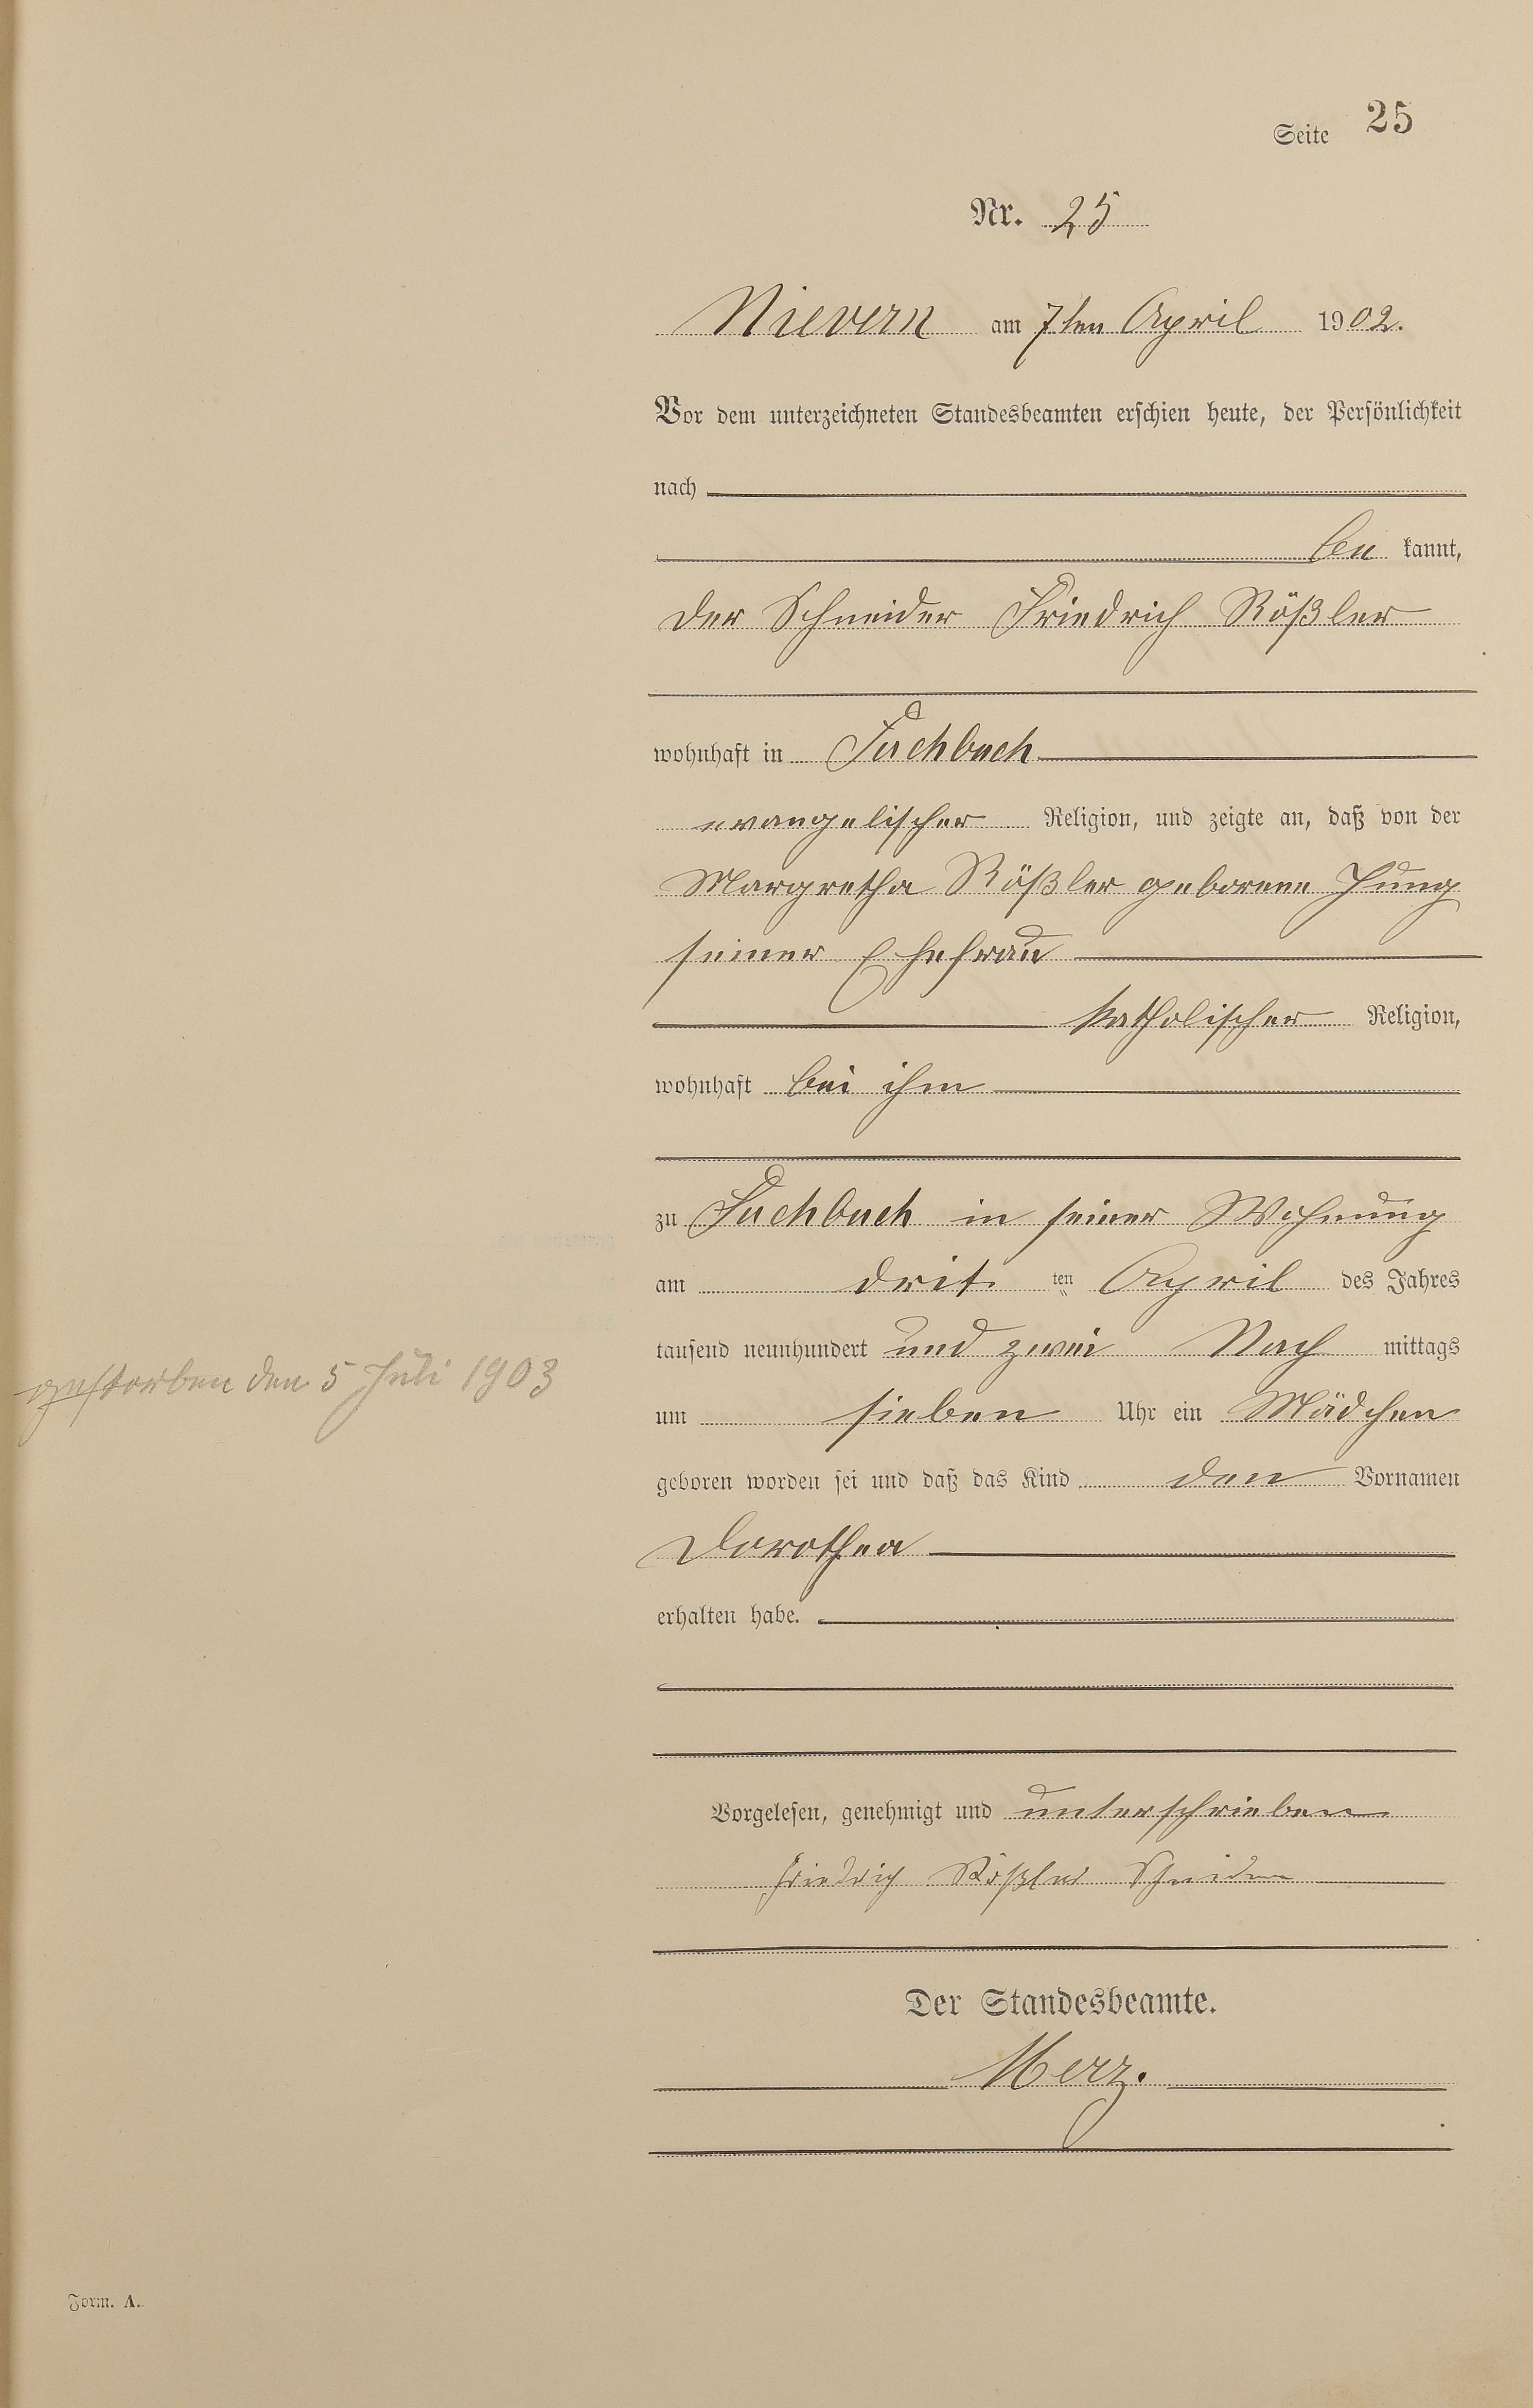 Seite 25
Nr. 25
Nievern am 7ten April 1902.
Vor dem unterzeichneten Standesbeamten erschien heute, der Persönlichkeit
nach
be kannt,
der Schneider Friedrich Rößler
wohnhaft in Fachbach
evangelischer Religion, und zeigte an, daß von der
Margretha Rößler geborene Jung
seiner Ehefrau
katholischer Religion,
wohnhaft bei ihm
zu Fachbach in seiner Wohnung
am drit ten April des Jahres
tausend neunhundert und zwei Nach mittags
gestorben den 5 Juli 1903
um sieben Uhr ein Mädchen
geboren worden sei und daß das Kind den Vornamen
Dorothea
erhalten habe.
Vorgelesen, genehmigt und unterschrieben
Friedrich Rößler Schneider
Der Standesbeamte.
Merz.
Form. A.